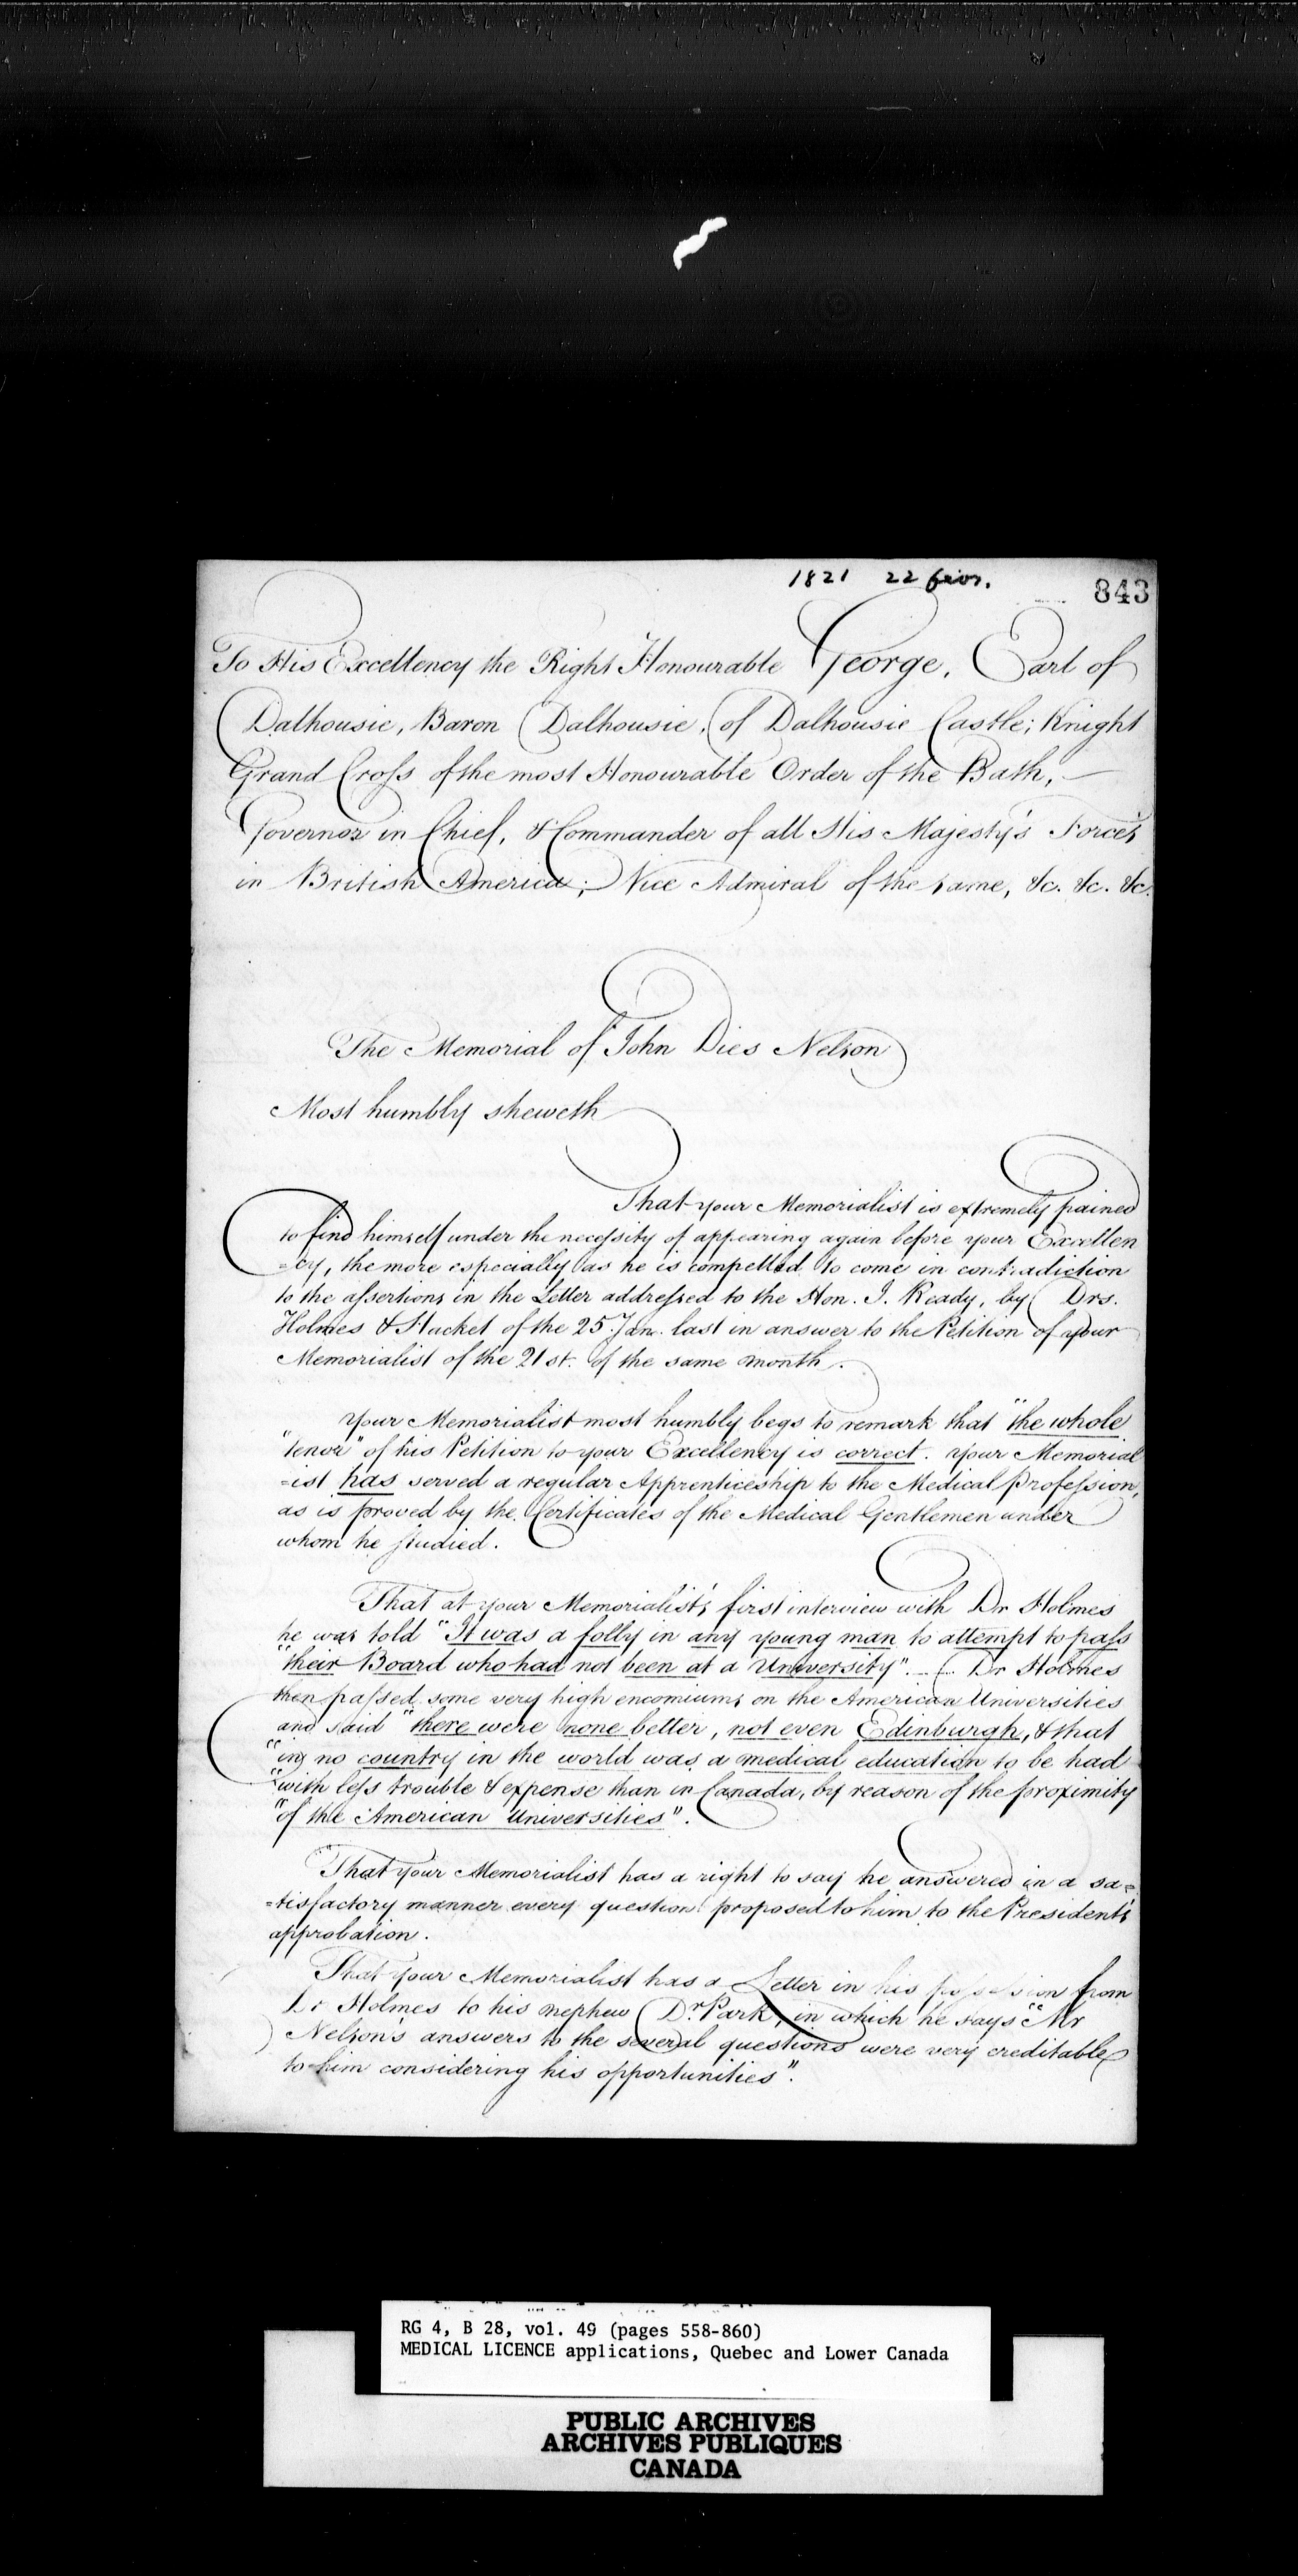 1821 22 fevr.
843
To His Excellency the Right Honourable George, Earl of
Dalhousie, Baron Dalhousie, of Dalhousie Castle; Knight
Grand Cross of the most Honourable Order of the Bath, —
Governor in Chief, & Commander of all His Majesty's Forces
in British America; Vice Admiral of the same, &c. &c. &c.
The Memorial of John Dies Nelson
Most humbly sheweth
That your Memorialist is extremely pained
to find himself under the necessity of appearing again before your Excellen
=cy, the more especially as he is compelled to come in contradiction
to the assertions in the Letter addressed to the Hon. J. Ready, by Drs.
Holmes & Hacket of the 25 Jan. last in answer to the Petition of your
Memorialist of the 21st. of the same month.
Your Memorialist most humbly begs to remark that "the whole
"tenor" of his Petition to your Excellency is correct. Your Memorial
=ist has served a regular Apprenticeship to the Medical profession,
as is proved by the Certificates of the Medical Gentlemen under
whom he studied.
That at your Memorialist's first interview with Dr Holmes
he was told "It was a folly in any young man to attempt to pass
"their Board who had not been at a University". — Dr Holmes
then passed some very high encomiums on the American Universities
and said "there were none better, not even Edinburgh, & that
"in no country in the world was a medical education to be had
"with less trouble & expense than in Canada, by reason of the proximity
"of the American Universities".
That your Memorialist has a right to say he answered in a sa=
=tisfactory manner every question proposed to him to the President's
approbation.
That your Memorialist has a Letter in his possession from
Dr Holmes to his nephew Dr. Park, in which he says "Mr
Nelson's answers to the several questions were very creditable
to him considering his opportunities".
RG 4, B 28, vol. 49 (pages 558-860)
MEDICAL LICENCE applications, Quebec and Lower Canada
PUBLIC ARCHIVES
ARCHIVES PUBLIQUES
CANADA